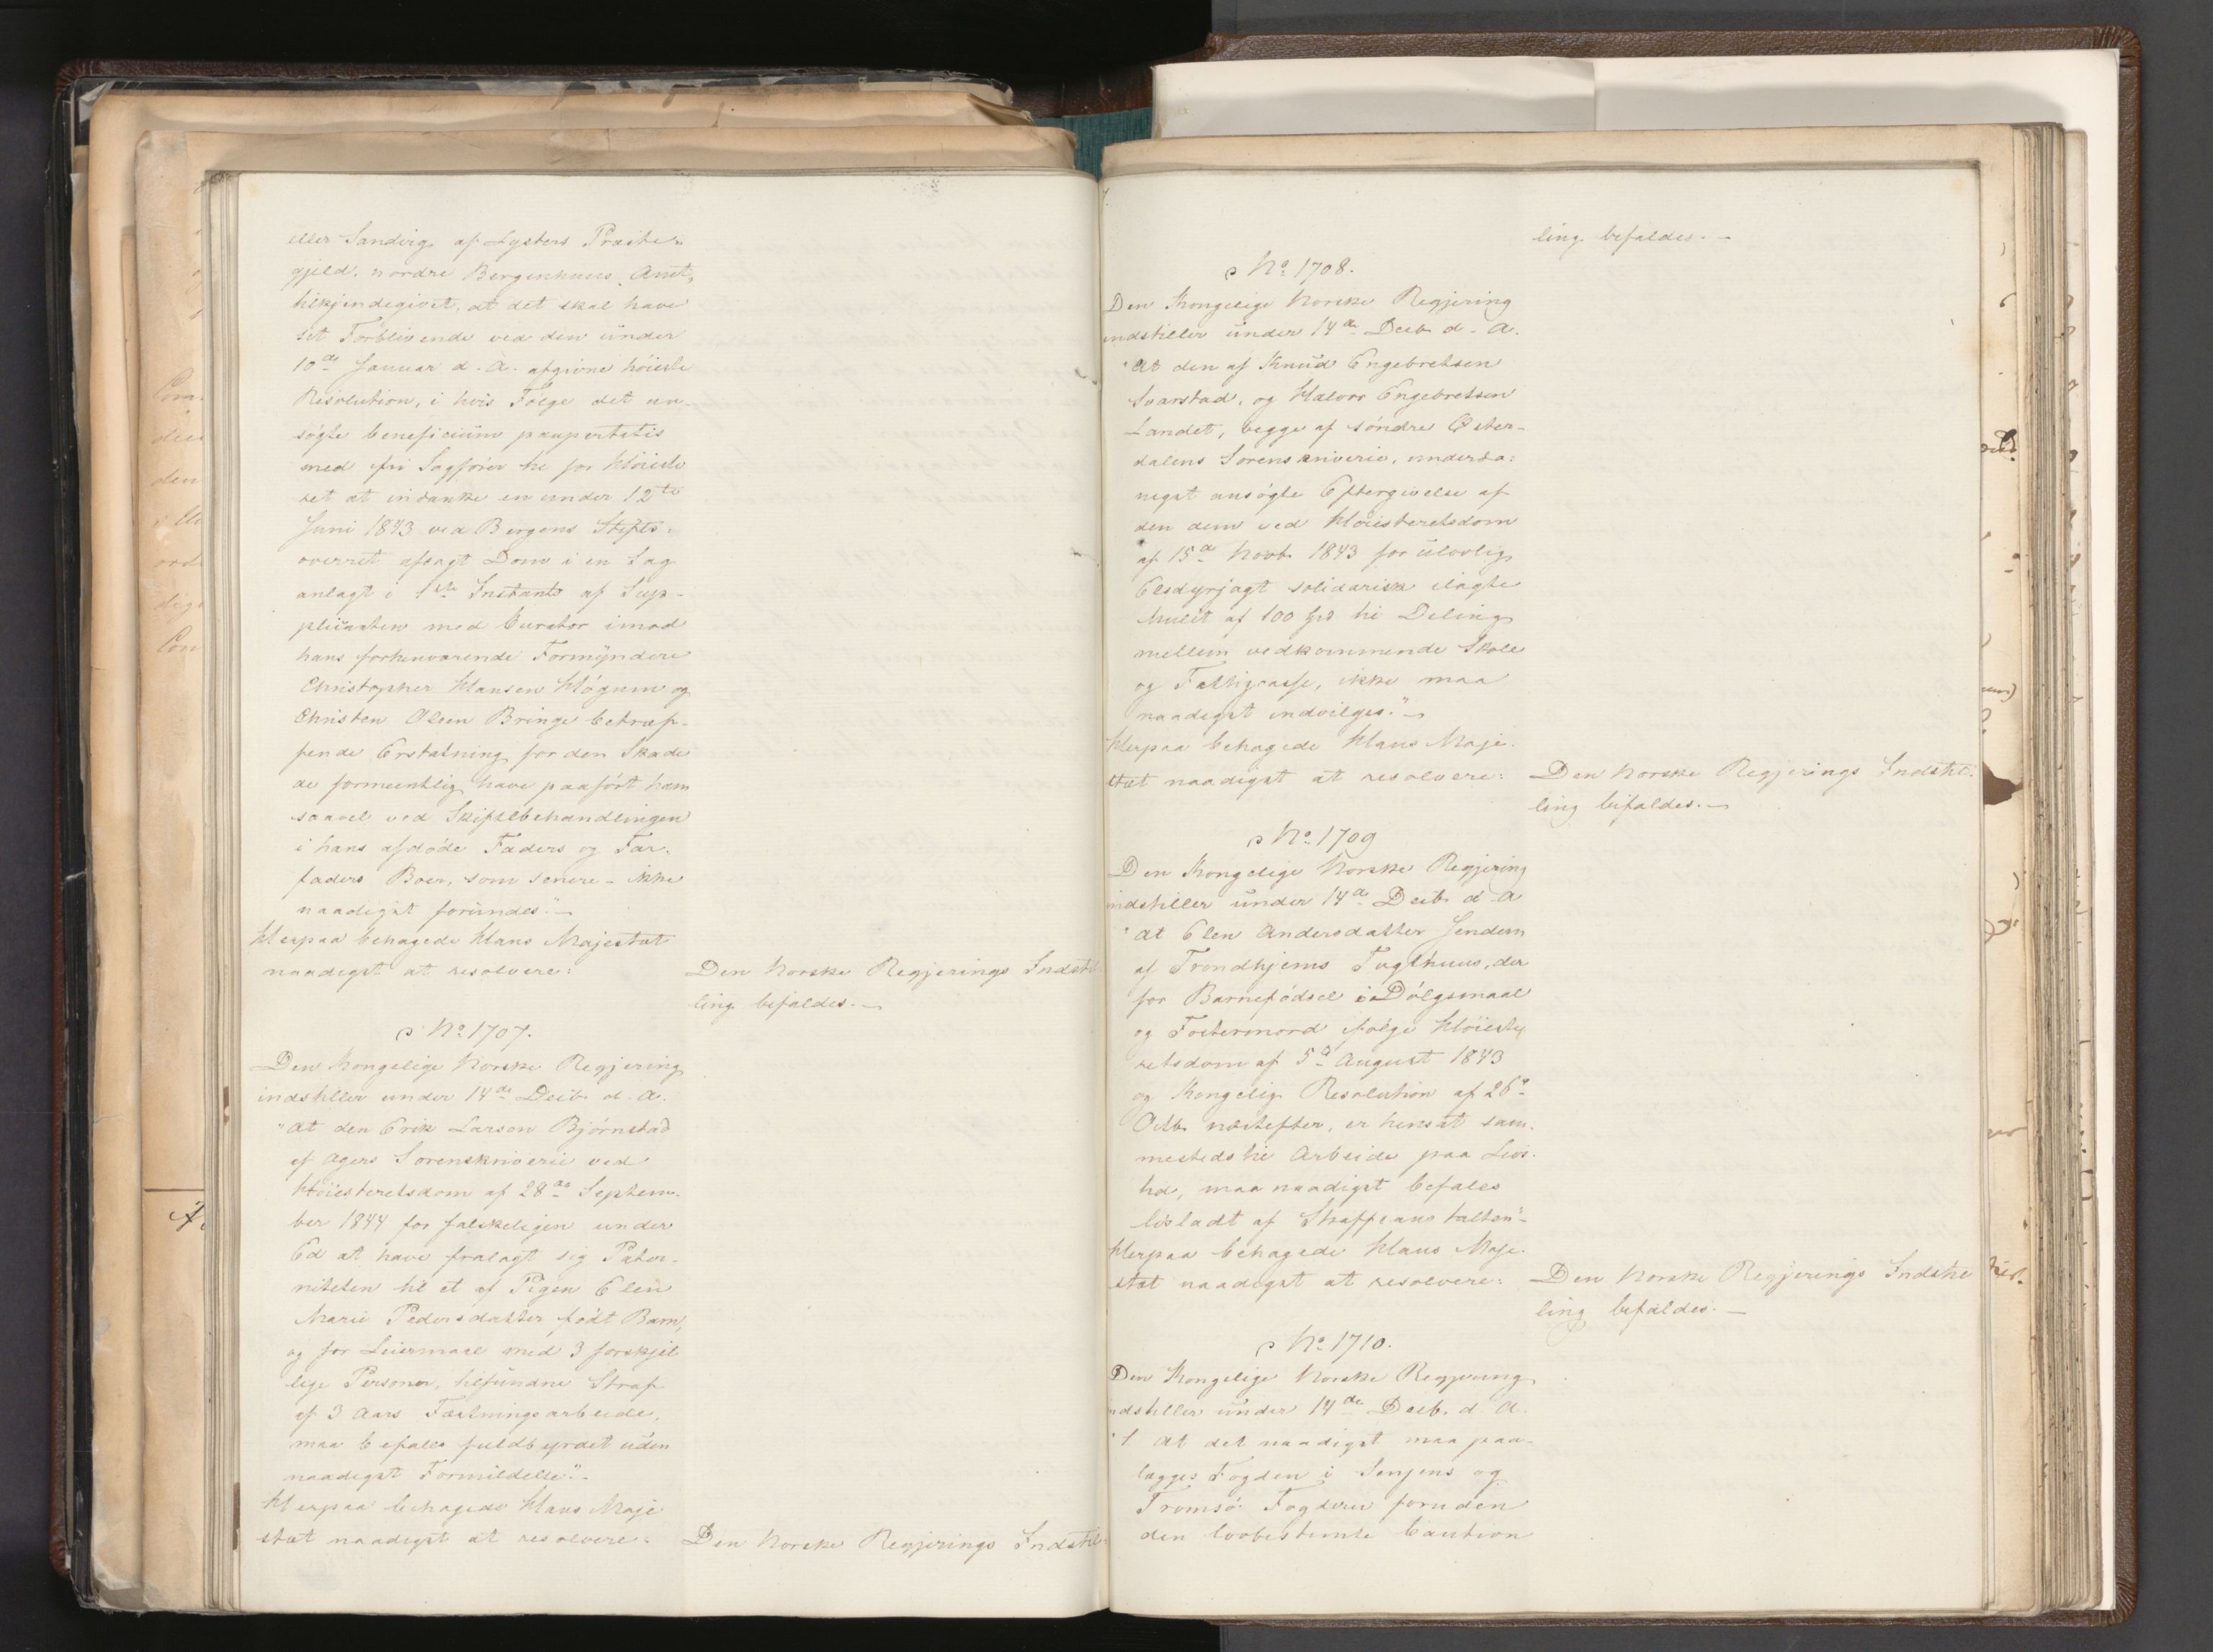 eller Sandvig af Lysters Præste-
gjeld, nordre Bergenhuus Amt,
tilkjendegivet, at det skal have
sit Forblivende ved den under
10de Januar d. A. afgivne höieste
Resolution, i hvis Følge det an-
søgte beneficium paupertatis
med fri Sagfører til for Höieste
ret at indanke en under 12te
Juni 1843 ved Bergens Stifts-
overret afsagt Dom i en Sag
anlagt i 1ste Instants af Sup-
plicanten med Curator imod
hans forhenværende Formyndere
Christopher Hansen Høgum og
Christen Olsen Bringe betræf-
fende Erstatning for den Skade
de formeentlig have paaført ham
saavel ved Skiftebehandlingen
i hans afdøde Faders og Far-
faders Boer, som senere - ikke
naadigst forundes." -
Herpaa behagede Hans Majestæt
naadigst at resolvere:
Den Norske Regjerings Indstil-
ling bifaldes. -
No 1707.
Den Kongelige Norske Regjering
indstiller under 14de Decb. d. A.
"At den Erik Larsen Bjørnstad
af Agers Sorenskriverie ved
Höiesteretsdom af 28de Septem-
ber 1844 for falskeligen under
Ed at have fralagt sig Pater-
niteten til et af Pigen Elen
Marie Pedersdatter født Barn,
og for Leiermaal med 3 forskjel
lige Personer, tilfundne Straf
af 3 Aars Fæstningsarbeide,
maa befales fuldbyrdet uden
naadigst Formildelse." -
Herpaa behagede Hans Maje
stæt naadigst at resolvere:
Den Norske Regjerings Indstil-
ling bifaldes. -
No 1708.
Den Kongelige Norske Regjering
indstiller under 14de Decb. d. A.
"At den af Knud Engebretsen
Svarstad, og Halvor Engebretsen
Landet, begge af søndre Øster-
dalens Sorenskriverie, underda-
nigst ansøgte Eftergivelse af
den dem ved Höiesteretsdom
af 15de Novb. 1843 for ulovlig
Elsdyrjagt solidarisk ilagte
Mulct af 100 Spd til Deling
mellem vedkommende Skole
og Fattigcasse, ikke maa
naadigst indvilges." -
Herpaa behagede Hans Maje-
stæt naadigst at resolvere:
Den Norske Regjerings Indstil-
ling bifaldes. -
No 1709
Den Kongelige Norske Regjering
indstiller under 14de Decb. d. A
"At Elen Andersdatter Jendem
af Trondhjems Tugthuus, der
for Barnefødsel i Dølgsmaal
og Fostermord ifølge Höieste
retsdom af 5te August 1843
og Kongelig Resolution af 26de
Octb. næstefter, er hensat sam-
mesteds til Arbeide paa Livs-
tid, maa naadigst befales
løsladt af Straffeanstalten" -
Herpaa behagede Hans Maje-
stæt naadigst at resolvere:
Den Norske Regjerings Indstil
ling bifaldes. -
No 1710.
Den Kongelige Norske Regjering
indstiller under 14de Decb. d. A.
"1 At det naadigst maa paa-
lægges Fogden i Senjens og
Tromsø Fogderie foruden
den lovbestemte Caution